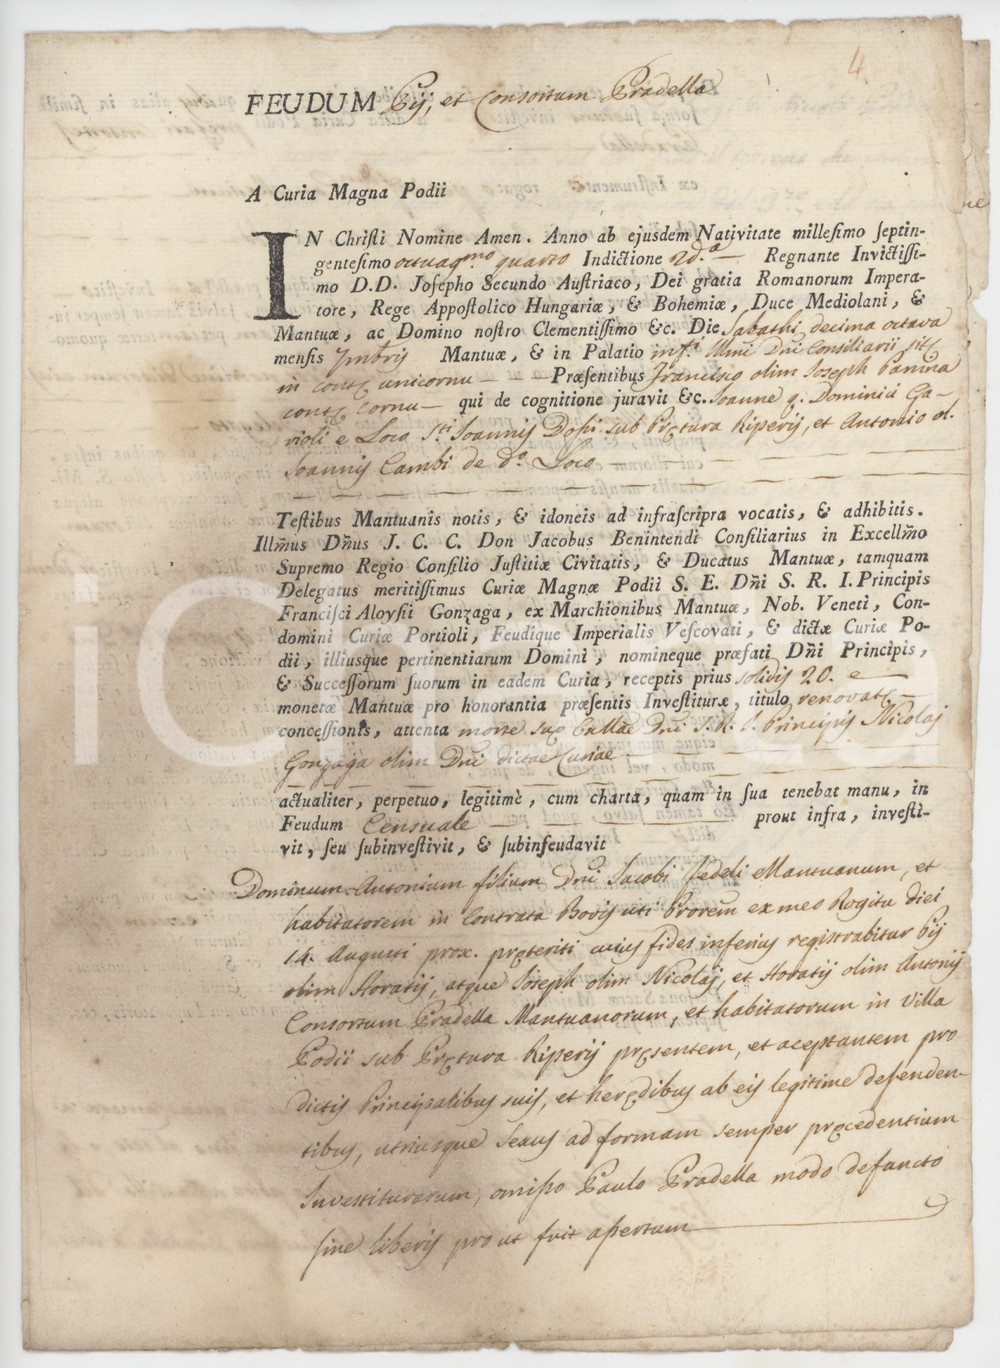 4.
FEUDUM Pij, et Consortum Pradella
A Curia Magna Podii
IN Chriſti Nomine Amen. Anno ab ejusdem Nativitate millefimo ſeptin-
gentefimo octuag.mo quarto Indictione 2d.a — Regnante Invictiſſi-
mo D.D. Joſepho Secundo Auſtriaco, Dei gratia Romanorum Impera-
tore, Rege Appoſtolico Hungariæ, & Bohemiæ, Duce Mediolani, &
Mantuæ, ac Domino noſtro Clementiſſimo &c. Die Sabathi decima octava
menſis Xmbris Mantuæ, & in Palatio inf.i Illmi Dni Consiliarii sit.
in cont. unicornu — — Præſentibus Francisco olim Joseph Panina
cont. Cornu — qui de cognitione juravit &c. Joanne q. Dominici Ga-
violi e Loco S.ti Joannis Dosii sub Prętura Riperij, et Antonio ol.
Joannis Cambi de d.o Loco
Teſtibus Mantuanis notis, & idoneis ad infraſcripra vocatis, & adhibitis.
Illm̃us Dñus J. C. C. Don Jacobus Benintendi Conſiliarius in Excellm̃o
Supremo Regio Conſilio Juſtitiæ Civitatis, & Ducatus Mantuæ, tamquam
Delegatus meritiſſimus Curiæ Magnæ Podii S. E. Dñi S. R. I. Principis
Franciſci Aloyſii Gonzaga, ex Marchionibus Mantuæ, Nob. Veneti, Con-
domini Curiæ Portioli, Feudique Imperialis Veſcovati, & dictæ Curiæ Po-
dii, illiusque pertinentiarum Domini, nomineque præfati Dñi Principis,
& Succeſſorum ſuorum in eadem Curia, receptis prius solidis 20. e —
monetæ Mantuæ pro honorantia præſentis Inveſtituræ, titulo renovat. —
conceſſionis, attenta morte sup. Callae Dni S. R. I. Principis Nicolaj
Gonzaga olim Dni dictae Curiae
actualiter, perpetuo, legitimè, cum charta, quam in ſua tenebat manu, in
Feudum Censuale — prout infra, inveſti-
vit, ſeu ſubinveſtivit, & ſubinfeudavit
Dominum Antonium filium Dni Jacobi Fedeli Mantuanum, et
habitatorem in Contrata Bovis uti Prorem ex meo Rogitu diei
14. Augusti prox. pręteriti cuius fides inferius registrabitur Pij
olim Horatij, atque Joseph olim Nicolaj, et Horatij olim Antonij
Consortum Pradella Mantuanorum, et habitatorum in Villa
Podii sub Prętura Riperij pręsentem, et aceptantem pro
dictis Principalibus suis, et herędibus ab eis legitime descenden-
tibus, utriusque sexus ad formam semper pręcedentium
Investiturarum, omisso Paulo Pradella modo defuncto
sine liberis pro ut fuit asertum